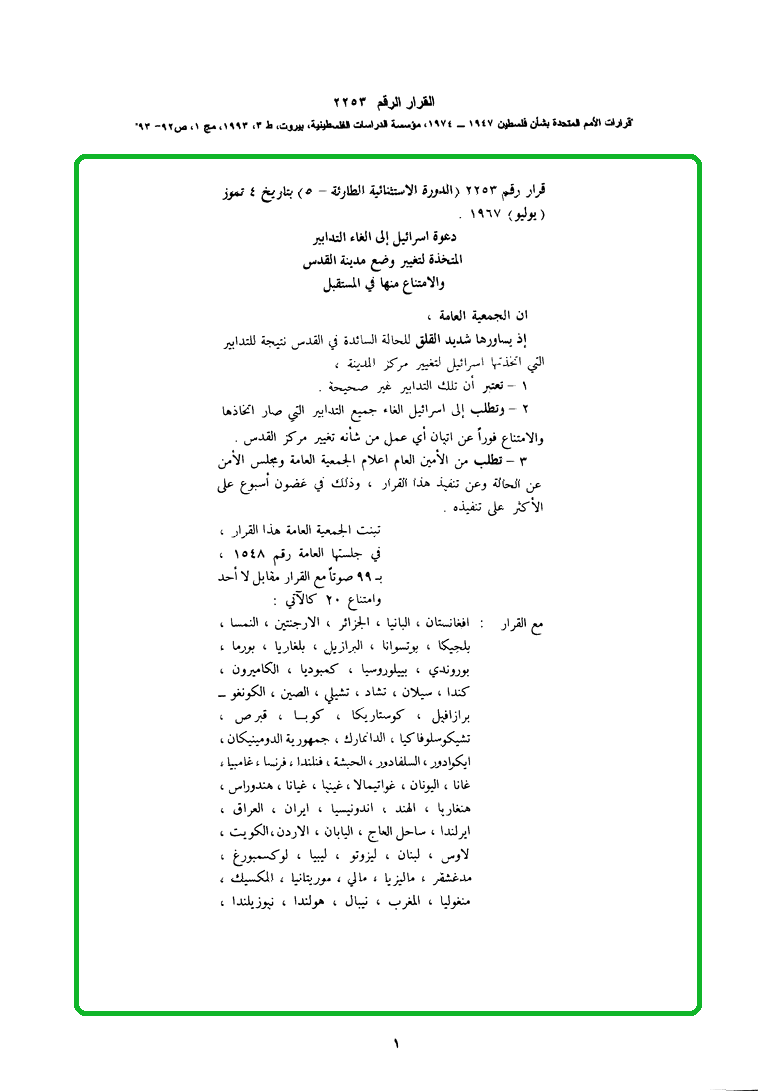 القرار الرقم ٢٢٥٣
"قرارات الأمم المتحدة بشأن فلسطين ١٩٤٧ – ١٩٧٤، مؤسسة الدراسات الفلسطينية، بيروت، ط ٣، ١٩٩٣، مج ١، ص٩٢- ٩٣"
قرار رقم ٢٢٥٣ (الدورة الاستثنائية الطارئة – ٥) بتاريخ ٤ تموز
(يوليو) ١٩٦٧ .
دعوة اسرائيل إلى الغاء التدابير
المتخذة لتغيير وضع مدينة القدس
والامتناع منها في المستقبل
ان الجمعية العامة ،
إذ يساورها شديد القلق للحالة السائدة في القدس نتيجة للتدابير
التي اتخذتها اسرائيل لتغيير مركز المدينة ،
١ – نعتبر أن تلك التدابير غير صحيحة .
٢ – وتطلب إلى اسرائيل الغاء جميع التدابير التي صار اتخاذها
والامتناع فوراً عن اتيان أي عمل من شأنه تغيير مركز القدس .
٣ – تطلب من الأمين العام اعلام الجمعية العامة ومجلس الأمن
عن الحالة وعن تنفيذ هذا القرار ، وذلك في غضون أسبوع على
الأكثر على تنفيذه .
تبنت الجمعية العامة هذا القرار ،
في جلستها العامة رقم ١٥٤٨ ،
بـ ٩٩ صوتاً مع القرار مقابل لا أحد
وامتناع ٢٠ كالآتي :
مع القرار : افغانستان ، البانيا ، الجزائر ، الارجنتين ، النمسا ،
بلجيكا ، بوتسوانا ، البرازيل ، بلغاريا ، بورما ،
بوروندي ، بييلوروسيا ، كمبوديا ، الكاميرون ،
كندا ، سيلان ، تشاد ، تشيلي ، الصين ، الكونغو –
برازافيل ، كوستاريكا ، كوبا ، قبرص ،
تشيكوسلوفاكيا ، الدانمارك ، جمهورية الدومينيكان،
ايكوادور، السلفادور، الحبشة ، فنلندا ، فرنسا ، غامبيا ،
غانا ، اليونان ، غواتيمالا ، غينيا ، غيانا ، هندوراس ،
هنغاريا ، الهند ، اندونيسيا ، ايران ، العراق ،
ايرلندا ، ساحل العاج ، اليابان ، الاردن، الكويت ،
لاوس ، لبنان ، ليزوتو ، ليبيا ، لوكسمبورغ ،
مدغشقر ، ماليزيا ، مالي ، موريتانيا ، المكسيك ،
منغوليا ، المغرب ، نيبال ، هولندا ، نيوزيلندا ،
١